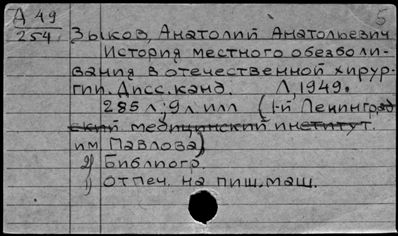 Д 49
254
5
Зыков, Анатолий Анатольевич
История местного обезболи-
вания в отечественной хирур-
гии. Дисс. канд. Л, 1949.
285 л; 9 л илл (1-й Ленинград
ский медицинский институт.
им Павлова)
2) Библиогр.
1) отпеч. на пиш. маш.